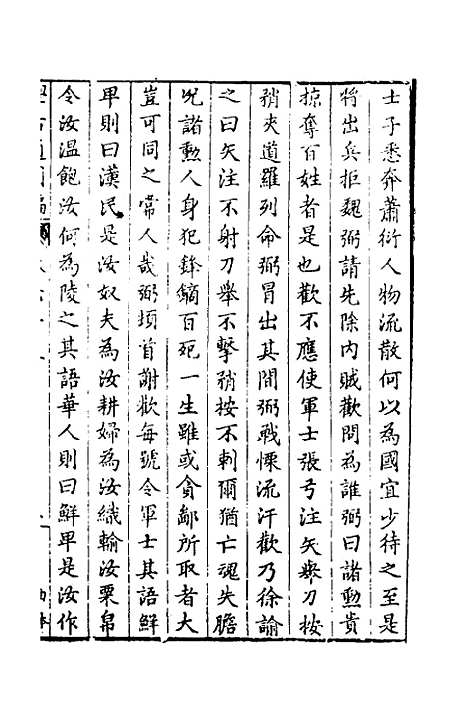 士子悉奔蕭衍人物流散何以為國宜少待之至是
將出兵拒魏弼請先除内賊歡問為誰弼曰諸勲貴
掠奪百姓者是也歡不應使軍士張弓注矢舉刀按
矟夾道羅列命弼冒出其間弼戰慄流汗歡乃徐諭
之曰矢注不射刀舉不擊矟按不刺爾猶亡魂失膽
况諸勲人身犯鋒鏑百死一生雖或貪鄙所取者大
豈可同之常人哉弼頓首謝歡每號令軍士其語鮮
卑則曰漢民是汝奴夫為汝耕婦為汝織輸汝粟帛
令汝温飽汝何為陵之其語華人則曰鮮卑是汝作